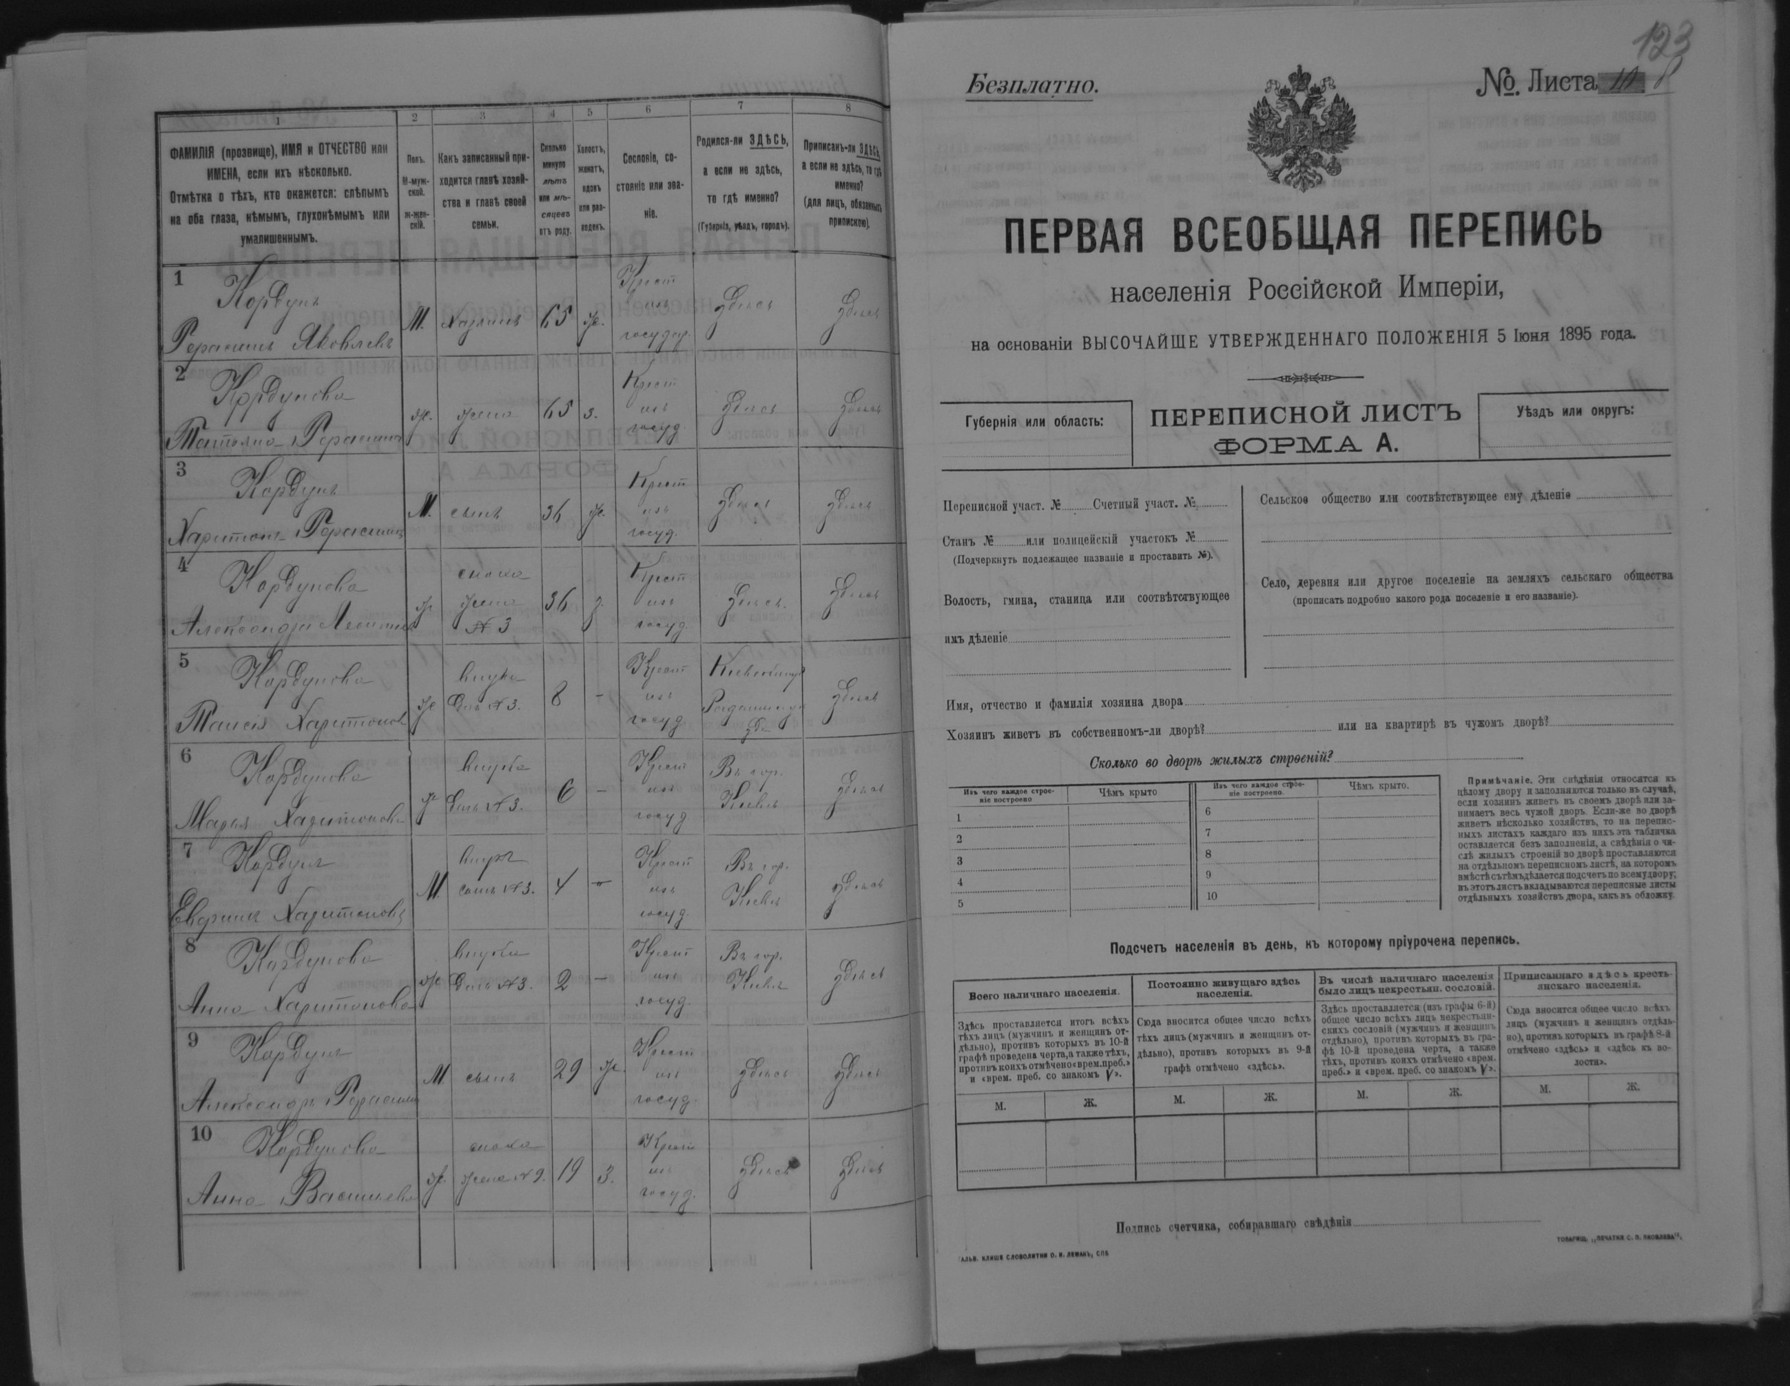 1
2
3
4
5
6
7
8
ФАМИЛІЯ (прозвище), ИМЯ и ОТЧЕСТВО или
ИМЕНА, если ихъ нѣсколько.
Отмѣтка о тѣхъ, кто окажется: слѣпымъ
на оба глаза, нѣмымъ, глухонѣмымъ или
умалишеннымъ.
Полъ.
М-муж-
ской.
ж-жен-
скій.
Какъ записанный при-
ходится главѣ хозяй-
ства и главѣ своей
семьи.
Сколько
минуло
лѣтъ
или мѣ-
сяцевъ
отъ роду.
Холостъ,
женатъ,
вдовъ
или раз-
веденъ.
Сословіе, со-
стояніе или зва-
ніе.
Родился-ли ЗДѢСЬ,
а если не здѣсь,
то гдѣ именно?
(Губернія, уѣздъ, городъ).
Приписанъ-ли ЗДѢСЬ,
а если не здѣсь, то гдѣ
именно?
(для лицъ, обязанныхъ
припискою).
1
Кордунъ
Герасимъ Яковлевъ
М.
хозяинъ
65
ж.
Крест
изъ
государ.
здѣсь
здѣсь
2
Кордунова
Татьяна Герасим
ж.
жена
65
з.
Крест
изъ
госуд.
здѣсь
здѣсь
3
Кордунъ
Харитонъ Герасим
М.
сынъ
36
ж.
Крест
изъ
госуд.
здѣсь
здѣсь
4
Кордунова
Александра
ж
сноха
жена
№ 3
36
з.
Крест
изъ
госуд.
здѣсь.
здѣсь
5
Кордунова
Таисія Харитонов
ж
внука
Дочь № 3.
8
-
Крест
изъ
госуд.
здѣсь
6
Кордунова
Марья Харитонова
ж
внука
Дочь № 3.
6
-
Крест
изъ
госуд
Въ гор.
Кіевѣ
здѣсь
7
Кордунъ
Харитоновъ
М
внукъ
сынъ № 3.
4
-
Крест
изъ
госуд.
Въ гор.
Кіевѣ
здѣсь
8
Кордунова
Анна Харитонова
ж
внука
Дочь № 3.
2
-
Крест
изъ
госуд.
Въ гор.
Кіевѣ
здѣсь
9
Кордунъ
Александръ Герасим
М
сынъ
29
ж.
Крест
изъ
госуд.
здѣсь
здѣсь
10
Кордунова
Анна Василева
ж.
сноха
жена № 9.
19
з.
Крест
изъ
госуд.
здѣсь
здѣсь
123
Безплатно.
№. Листа
ПЕРВАЯ ВСЕОБЩАЯ ПЕРЕПИСЬ
населенія Россійской Имперіи,
на основаніи ВЫСОЧАЙШЕ УТВЕРЖДЕННАГО ПОЛОЖЕНІЯ 5 Іюня 1895 года.
Губернія или область:
ПЕРЕПИСНОЙ ЛИСТЪ
ФОРМА А.
Уѣздъ или округъ:
Переписной участ. № Счетный участ. №
Станъ № или полицейскій участокъ №
(Подчеркнуть подлежащее названіе и проставить №).
Волость, гмина, станица или соотвѣтствующее
имъ дѣленіе
Сельское общество или соотвѣтствующее ему дѣленіе
Село, деревня или другое поселеніе на земляхъ сельскаго общества
(прописать подробно какого рода поселеніе и его названіе).
Имя, отчество и фамилія хозяина двора
Хозяинъ живетъ въ собственномъ-ли дворѣ? или на квартирѣ въ чужомъ дворѣ?
Сколько во дворѣ жилыхъ строеній?
Изъ чего каждое строе-
ніе построено
Чѣмъ крыто
Изъ чего каждое строе-
ніе построено.
Чѣмъ крыто.
1
2
3
4
5
6
7
8
9
10
Примѣчаніе. Эти свѣдѣнія относятся къ
цѣлому двору и заполняются только въ случаѣ,
если хозяинъ живетъ въ своемъ дворѣ или за-
нимаетъ весь чужой дворъ. Если-же во дворѣ
живетъ нѣсколько хозяйствъ, то на перепис-
ныхъ листахъ каждаго изъ нихъ эта табличка
оставляется безъ заполненія, а свѣдѣнія о чи-
слѣ жилыхъ строеній во дворѣ проставляются
на отдѣльномъ переписномъ листѣ, на которомъ
вмѣстѣ съ тѣмъ дѣлается подсчетъ по всему двору;
въ этотъ листъ вкладываются переписные листы
отдѣльныхъ хозяйствъ двора, какъ въ обложку.
Подсчетъ населенія въ день, къ которому пріурочена перепись.
Всего наличнаго населенія.
Здѣсь проставляется итогъ всѣхъ
тѣхъ лицъ (мужчинъ и женщинъ от-
дѣльно), противъ которыхъ въ 10-й
графѣ проведена черта, а также тѣхъ,
противъ коихъ отмѣчено «врем. преб.»
и «врем. преб. со знакомъ V».
Постоянно живущаго здѣсь
населенія.
Сюда вносится общее число всѣхъ
тѣхъ лицъ (мужчинъ и женщинъ от-
дѣльно), противъ которыхъ въ 9-й
графѣ отмѣчено «здѣсь».
Въ числѣ наличнаго населенія
было лицъ некрестьян. сословій.
Здѣсь проставляется (изъ графы 6-й)
общее число всѣхъ лицъ некрестьян-
скихъ сословій (мужчинъ и женщинъ
отдѣльно), противъ которыхъ въ гра-
фѣ 10-й проведена черта, а также
тѣхъ, противъ коихъ отмѣчено «врем.
преб.» и «врем. преб. со знакомъ V».
Приписаннаго здѣсь кресть-
янскаго населенія.
Сюда вносится общее число всѣхъ
лицъ (мужчинъ и женщинъ отдѣль-
но), противъ которыхъ въ графѣ 8-й
отмѣчено «здѣсь» и «здѣсь къ во-
лости».
М.
Ж.
М.
Ж.
М.
Ж.
М.
Ж.
Подпись счетчика, собиравшаго свѣдѣнія
ГАЛЬВ. КЛИШЕ СЛОВОЛИТНИ О. И. ЛЕМАНЪ, СПБ
ТОВАРИЩ. „ПЕЧАТНЯ С. П. ЯКОВЛЕВА“.